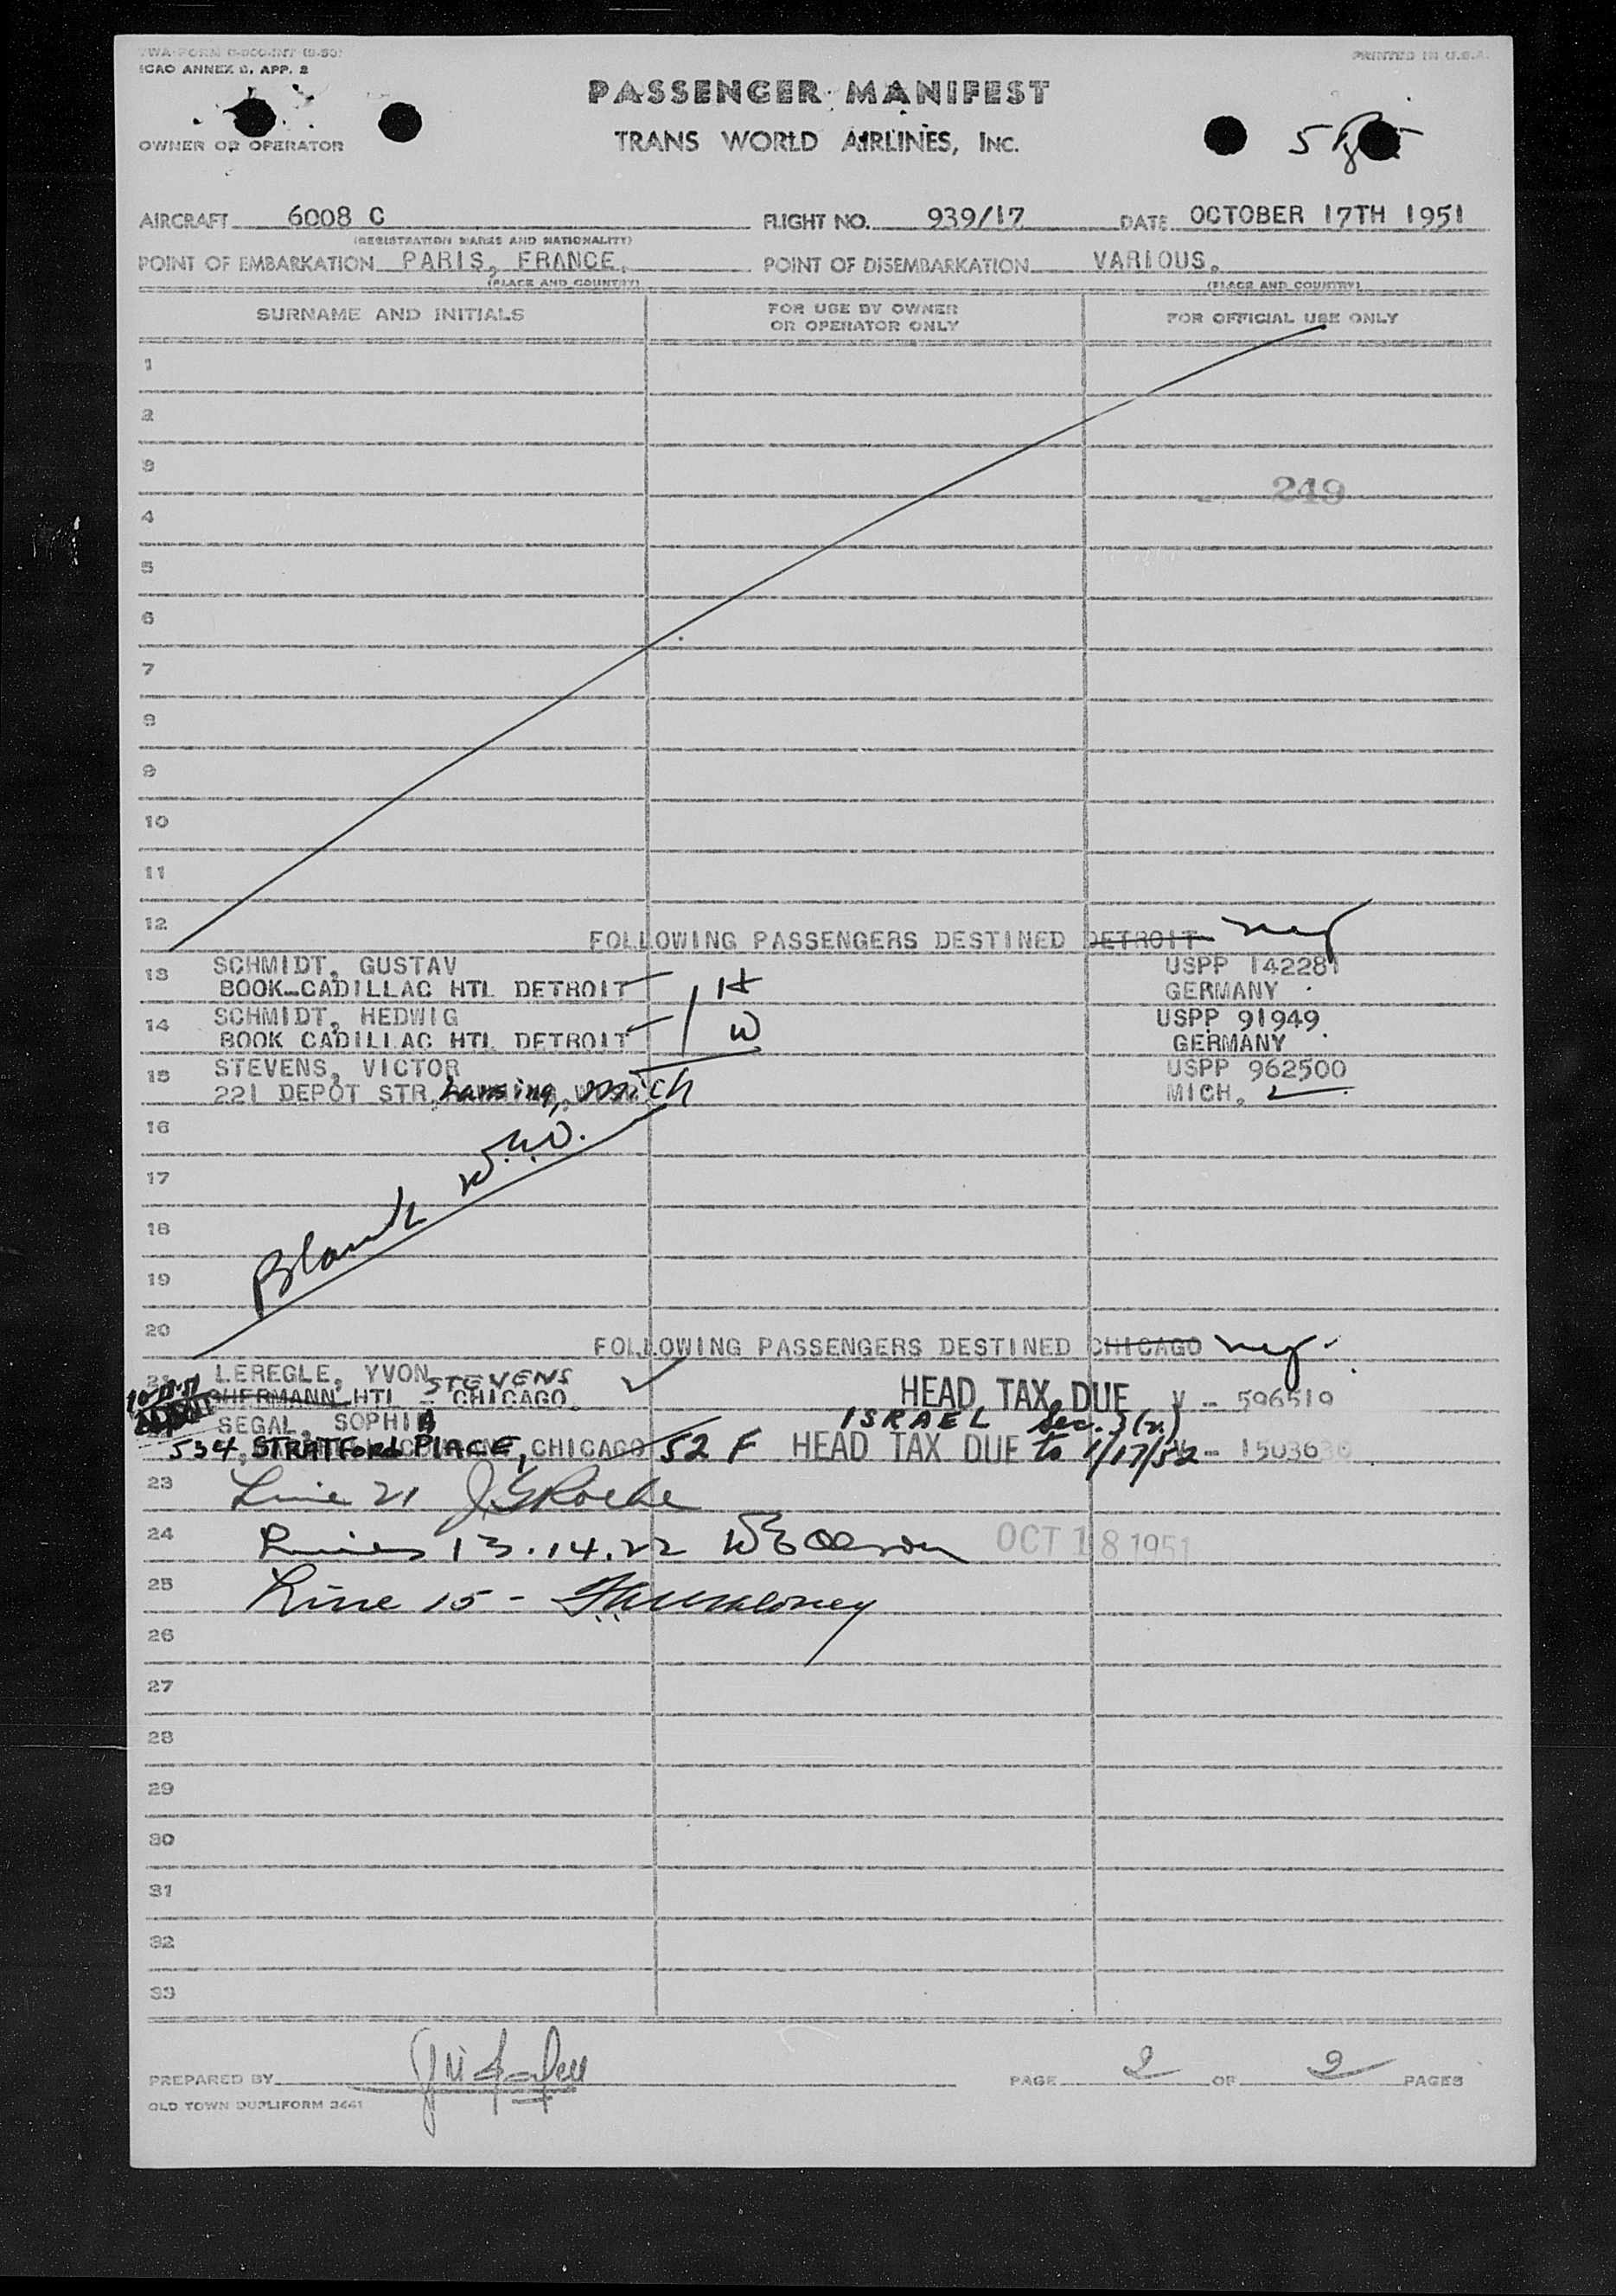 TWA FORM
PRINTED IN U.S.A.
ICAO ANNEX 9, APP. 2
PASSENGER MANIFEST
OWNER OR OPERATOR
TRANS WORLD AIRLINES, INC.
5
AIRCRAFT 6008 C FLIGHT NO. 939/17 DATE OCTOBER 17TH 1951
(REGISTRATION MARKS AND NATIONALITY)
POINT OF EMBARKATION PARIS, FRANCE. POINT OF DISEMBARKATION VARIOUS.
(PLACE AND COUNTRY) (PLACE AND COUNTRY)
SURNAME AND INITIALS FOR USE BY OWNER OR OPERATOR ONLY FOR OFFICIAL USE ONLY
1
2
3
249
4
5
6
7
8
9
10
11
12
FOLLOWING PASSENGERS DESTINED DETROIT
13 SCHMIDT, GUSTAV USPP 142281
BOOK-CADILLAC HTL DETROIT H GERMANY
14 SCHMIDT, HEDWIG USPP 91949.
BOOK CADILLAC HTL DETROIT W GERMANY
15 STEVENS, VICTOR USPP 962500
221 DEPOT STR, Lansing, Mich MICH.
16
17
18
Blank
19
20
FOLLOWING PASSENGERS DESTINED CHICAGO
21 LEREGLE, YVON STEVENS
HTL - CHICAGO. HEAD TAX DUE V - 596519
ADMITTED SEGAL, SOPHIA ISRAEL Sec. 3(2)
534, STRATFORD PLACE, CHICAGO 52 F HEAD TAX DUE to 1/17/52
23 Line 21 J.G Roche
24 Lines 13.14.22 OCT 18 1951
25 Line 15 -
26
27
28
29
30
31
32
33
PREPARED BY PAGE 2 OF 2 PAGES
OLD TOWN DUPLIFORM 3661